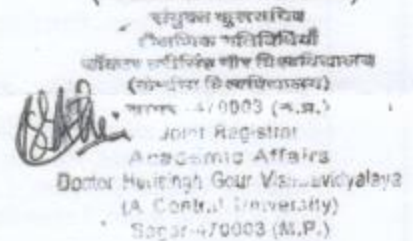 संयुक्त कुलसचिव
शैक्षणिक गतिविधियाँ
डॉक्टर हरीसिंह गौर विश्वविद्यालय
(केन्द्रीय विश्वविद्यालय)
सागर-470003 (म.प्र.)
Joint Registrar
Academic Affairs
Doctor Harisingh Gour Vishwavidyalaya
(A Central University)
Sagar-470003 (M.P.)